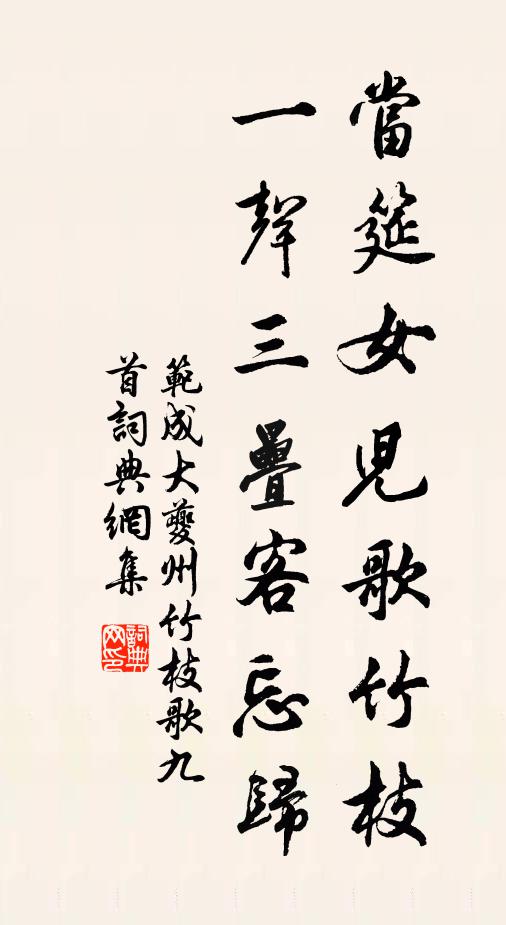 當筵女児歌竹枝
一聲三疊客忘歸
範成大夔州竹枝歌九
首詞典網集
詞典
网印